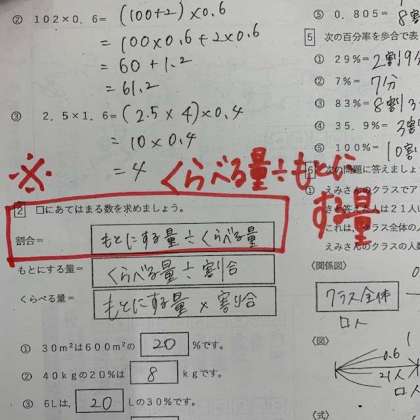 ② 102×0.6= (100+2)×0.6
= 100×0.6+2×0.6
= 60+1.2
= 61.2
③ 2.5×1.6= (2.5×4)×0.4
= 10×0.4
= 4
※ くらべる量÷もとに
する量
2 □にあてはまる数を求めましょう。
割合= もとにする量÷くらべる量
もとにする量= くらべる量÷割合
くらべる量= もとにする量×割合
① 30m²は600m²の 20 %です。
② 40kgの20%は 8 kgです。
③ 6Lは, 20 Lの30%です。
⑤ 0.805= 8割
5 次の百分率を歩合で表
① 29%= 2割9分
② 7%= 7分
③ 83%= 8割3
④ 35.9%= 3割
⑤ 100%= 10割
次の問題に答えましょ
① えみさんのクラスで
人は21人
これは、クラス全体の
えみさんのクラスの人数
〈関係図〉
クラス全体
□人
〈図〉
0.6
21人
□人
〈式〉